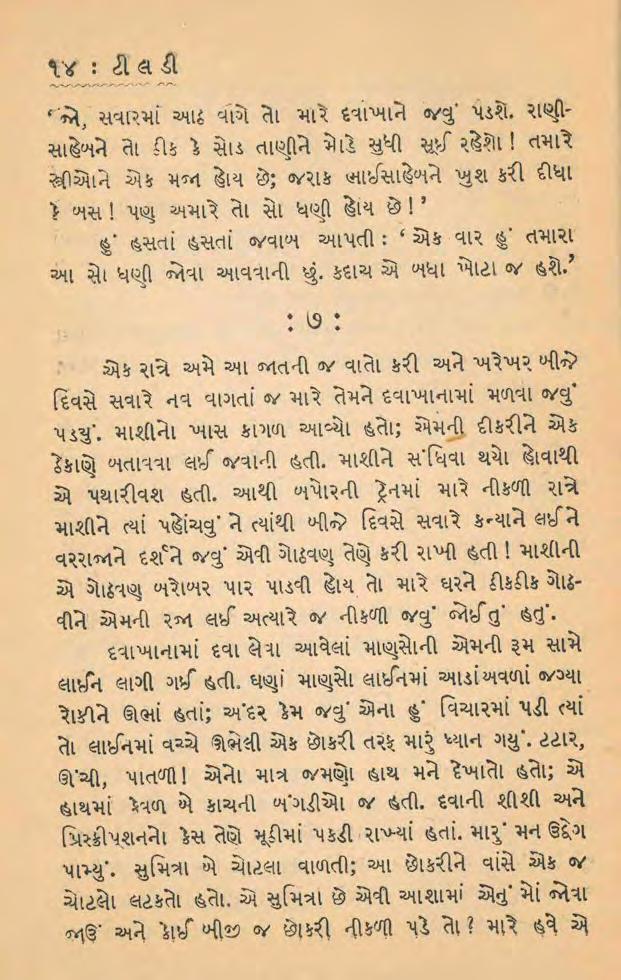 ૧૪ : ટીલડી
‘જો, સવારમાં આઠ વાગે તો મારે દવાખાને જવું પડશે. રાણી-
સાહેબને તો ઠીક કે સોડ તાણીને મોડે સુધી સૂઈ રહેશો! તમારે
સ્ત્રીઓને એક મજા હોય છે; જરાક ભાઈસાહેબને ખુશ કરી દીધા
કે બસ! પણ અમારે તો સો ધણી હોય છે!’
હું હસતાં હસતાં જવાબ આપતી : ‘એક વાર હું તમારા
આ સો ધણી જોવા આવવાની છું. કદાચ એ બધા ખોટા જ હશે.’
: ૭ :
એક રાત્રે અમે આ જાતની જ વાતો કરી અને ખરેખર બીજે
દિવસે સવારે નવ વાગતાં જ મારે તેમને દવાખાનામાં મળવા જવું
પડયું. માશીનો ખાસ કાગળ આવ્યો હતો; એમની દીકરીને એક
ઠેકાણે બતાવવા લઈ જવાની હતી. માશીને સંધિવા થયો હોવાથી
એ પથારીવશ હતી. આથી બપોરની ટ્રેનમાં મારે નીકળી રાત્રે
માશીને ત્યાં પહોંચવું ને ત્યાંથી બીજે દિવસે સવારે કન્યાને લઈને
વરરાજાને દર્શને જવું એવી ગોઠવણ તેણે કરી રાખી હતી! માશીની
એ ગોઠવણ બરોબર પાર પાડવી હોય તો મારે ઘરને ઠીકઠીક ગોઠ-
વીને એમની રજા લઈ અત્યારે જ નીકળી જવું જોઈતું હતું.
દવાખાનામાં દવા લેવા આવેલાં માણસોની એમની રૂમ સામે
લાઈન લાગી ગઈ હતી. ઘણાં માણસો લાઈનમાં આડાંઅવળાં જગ્યા
રોકીને ઊભાં હતાં; અંદર કેમ જવું એના હું વિચારમાં પડી ત્યાં
તો લાઈનમાં વચ્ચે ઊભેલી એક છોકરી તરફ મારું ધ્યાન ગયું. ટટાર,
ઊંચી, પાતળી! એનો માત્ર જમણો હાથ મને દેખાતો હતો; એ
હાથમાં કેવળ બે કાચની બંગડીઓ જ હતી. દવાની શીશી અને
પ્રિસ્ક્રીપશનનો કેસ તેણે મૂઠીમાં પકડી રાખ્યાં હતાં. મારું મન ઉદ્વેગ
પામ્યું. સુમિત્રા બે ચોટલા વાળતી; આ છોકરીને વાંસે એક જ
ચોટલો લટકતો હતો. એ સુમિત્રા છે એવી આશામાં એનું મોં જોવા
જાઉં અને કોઈ બીજી જ છોકરી નીકળી પડે તો? મારે હવે એ